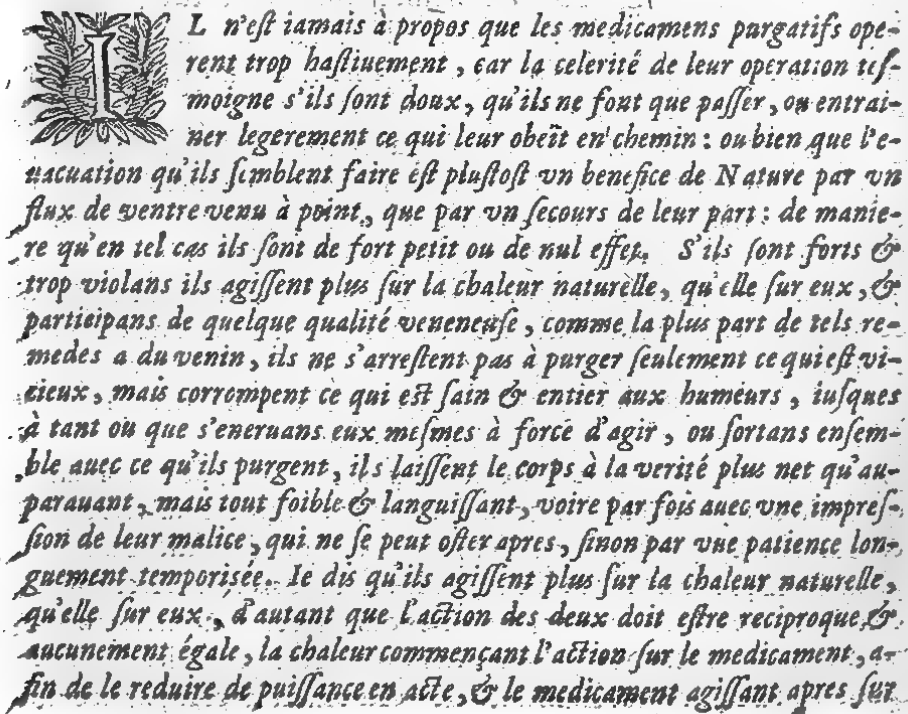 IL n'eſt iamais à propos que les medicamens purgatifs ope-
rent trop haſtiuement, car la celerité de leur operation teſ-
moigne s'ils ſont doux, qu'ils ne font que paſſer, ou entrai-
ner legerement ce qui leur obeït en chemin: ou bien que l'e-
uacuation qu'ils ſemblent faire eſt pluſtoſt vn benefice de Nature par vn
flux de ventre venu à point, que par vn ſecours de leur part: de manie-
re qu'en tel cas ils ſont de fort petit ou de nul effet. S'ils ſont forts &
trop violans ils agiſſent plus ſur la chaleur naturelle, qu'elle ſur eux, &
participans de quelque qualité veneneuſe, comme la plus part de tels re-
medes a du venin, ils ne s'arreſtent pas à purger ſeulement ce qui eſt vi-
cieux, mais corrompent ce qui eſt ſain & entier aux humeurs, iuſques
à tant ou que s'eneruans eux meſmes à force d'agir, ou ſortans enſem-
ble auec ce qu'ils purgent, ils laiſſent le corps à la verité plus net qu'au-
parauant, mais tout foible & languiſſant, voire par fois auec vne impreſ-
ſion de leur malice, qui ne ſe peut oſter apres, ſinon par vue patience lon-
guement temporisée. Ie dis qu'ils agiſſent plus ſur la chaleur naturelle,
qu'elle ſur eux, d'autant que l'action des deux doit eſtre reciproque &
aucunement égale, la chaleur commençant l'action ſur le medicament, a-
fin de le reduire de puiſſance en acte, & le medicament agiſſant apres ſur